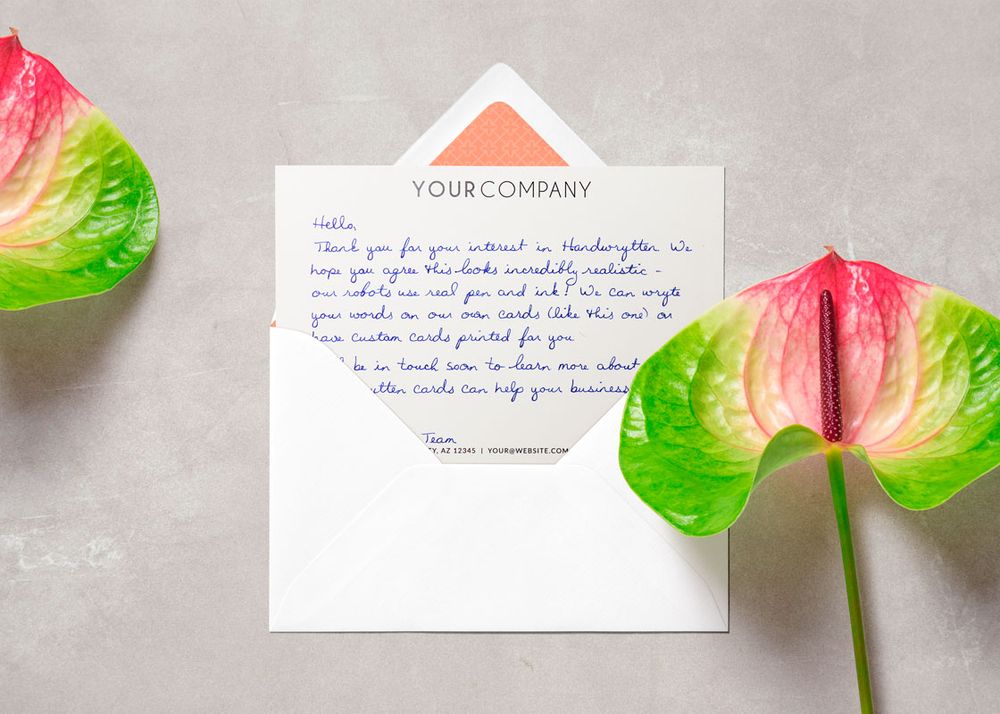 YOURCOMPANY
Hello,
Thank you for your interest in Handwrytten. We
hope you agree this looks incredibly realistic -
our robots use real pen and ink! We can wryte
your words on our own cards (like this one) or
have custom cards printed for you
be in touch soon to learn more about
cards can help your business
Team
AZ 12345 | YOUR@WEBSITE.COM